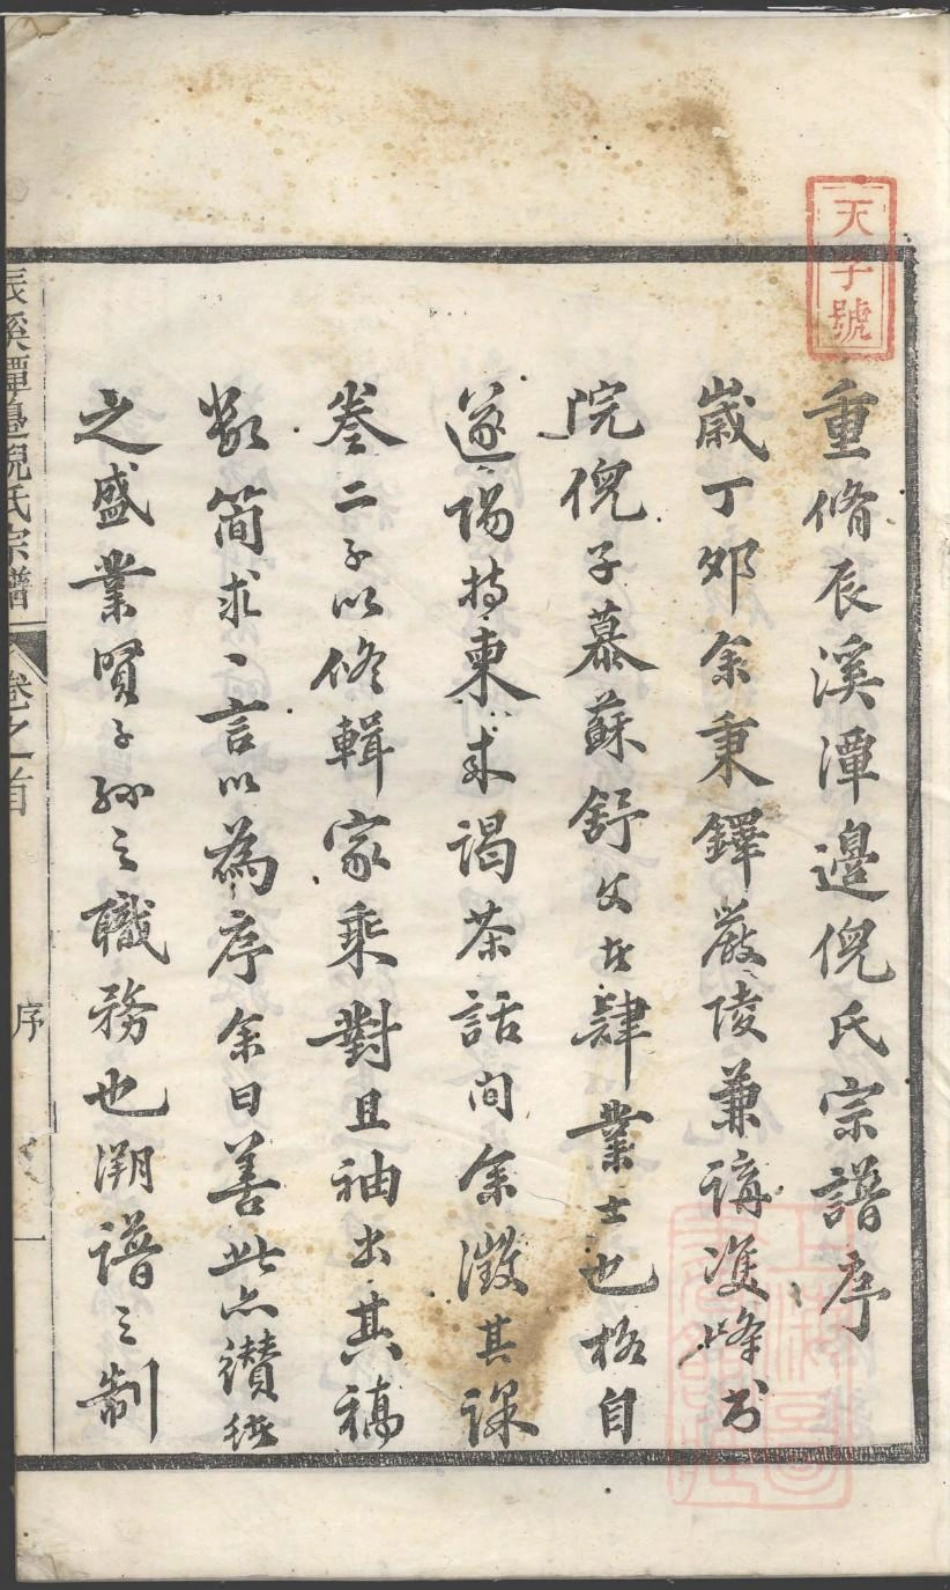 天字號
重脩辰溪潭邊倪氏宗譜序
歲丁卯余秉鐸嚴陵兼講雙峰書
院倪子慕蘇舒父在肆業士也格自
遂陽持柬来謁茶話间余徵其課
奎二子以修輯家乘對且袖出其稿
數简求一言以為序余曰善此亦讚稱
之盛業賢子孫之職務也溯譜之制
辰溪潭邊倪氏宗譜
卷之首
序
一